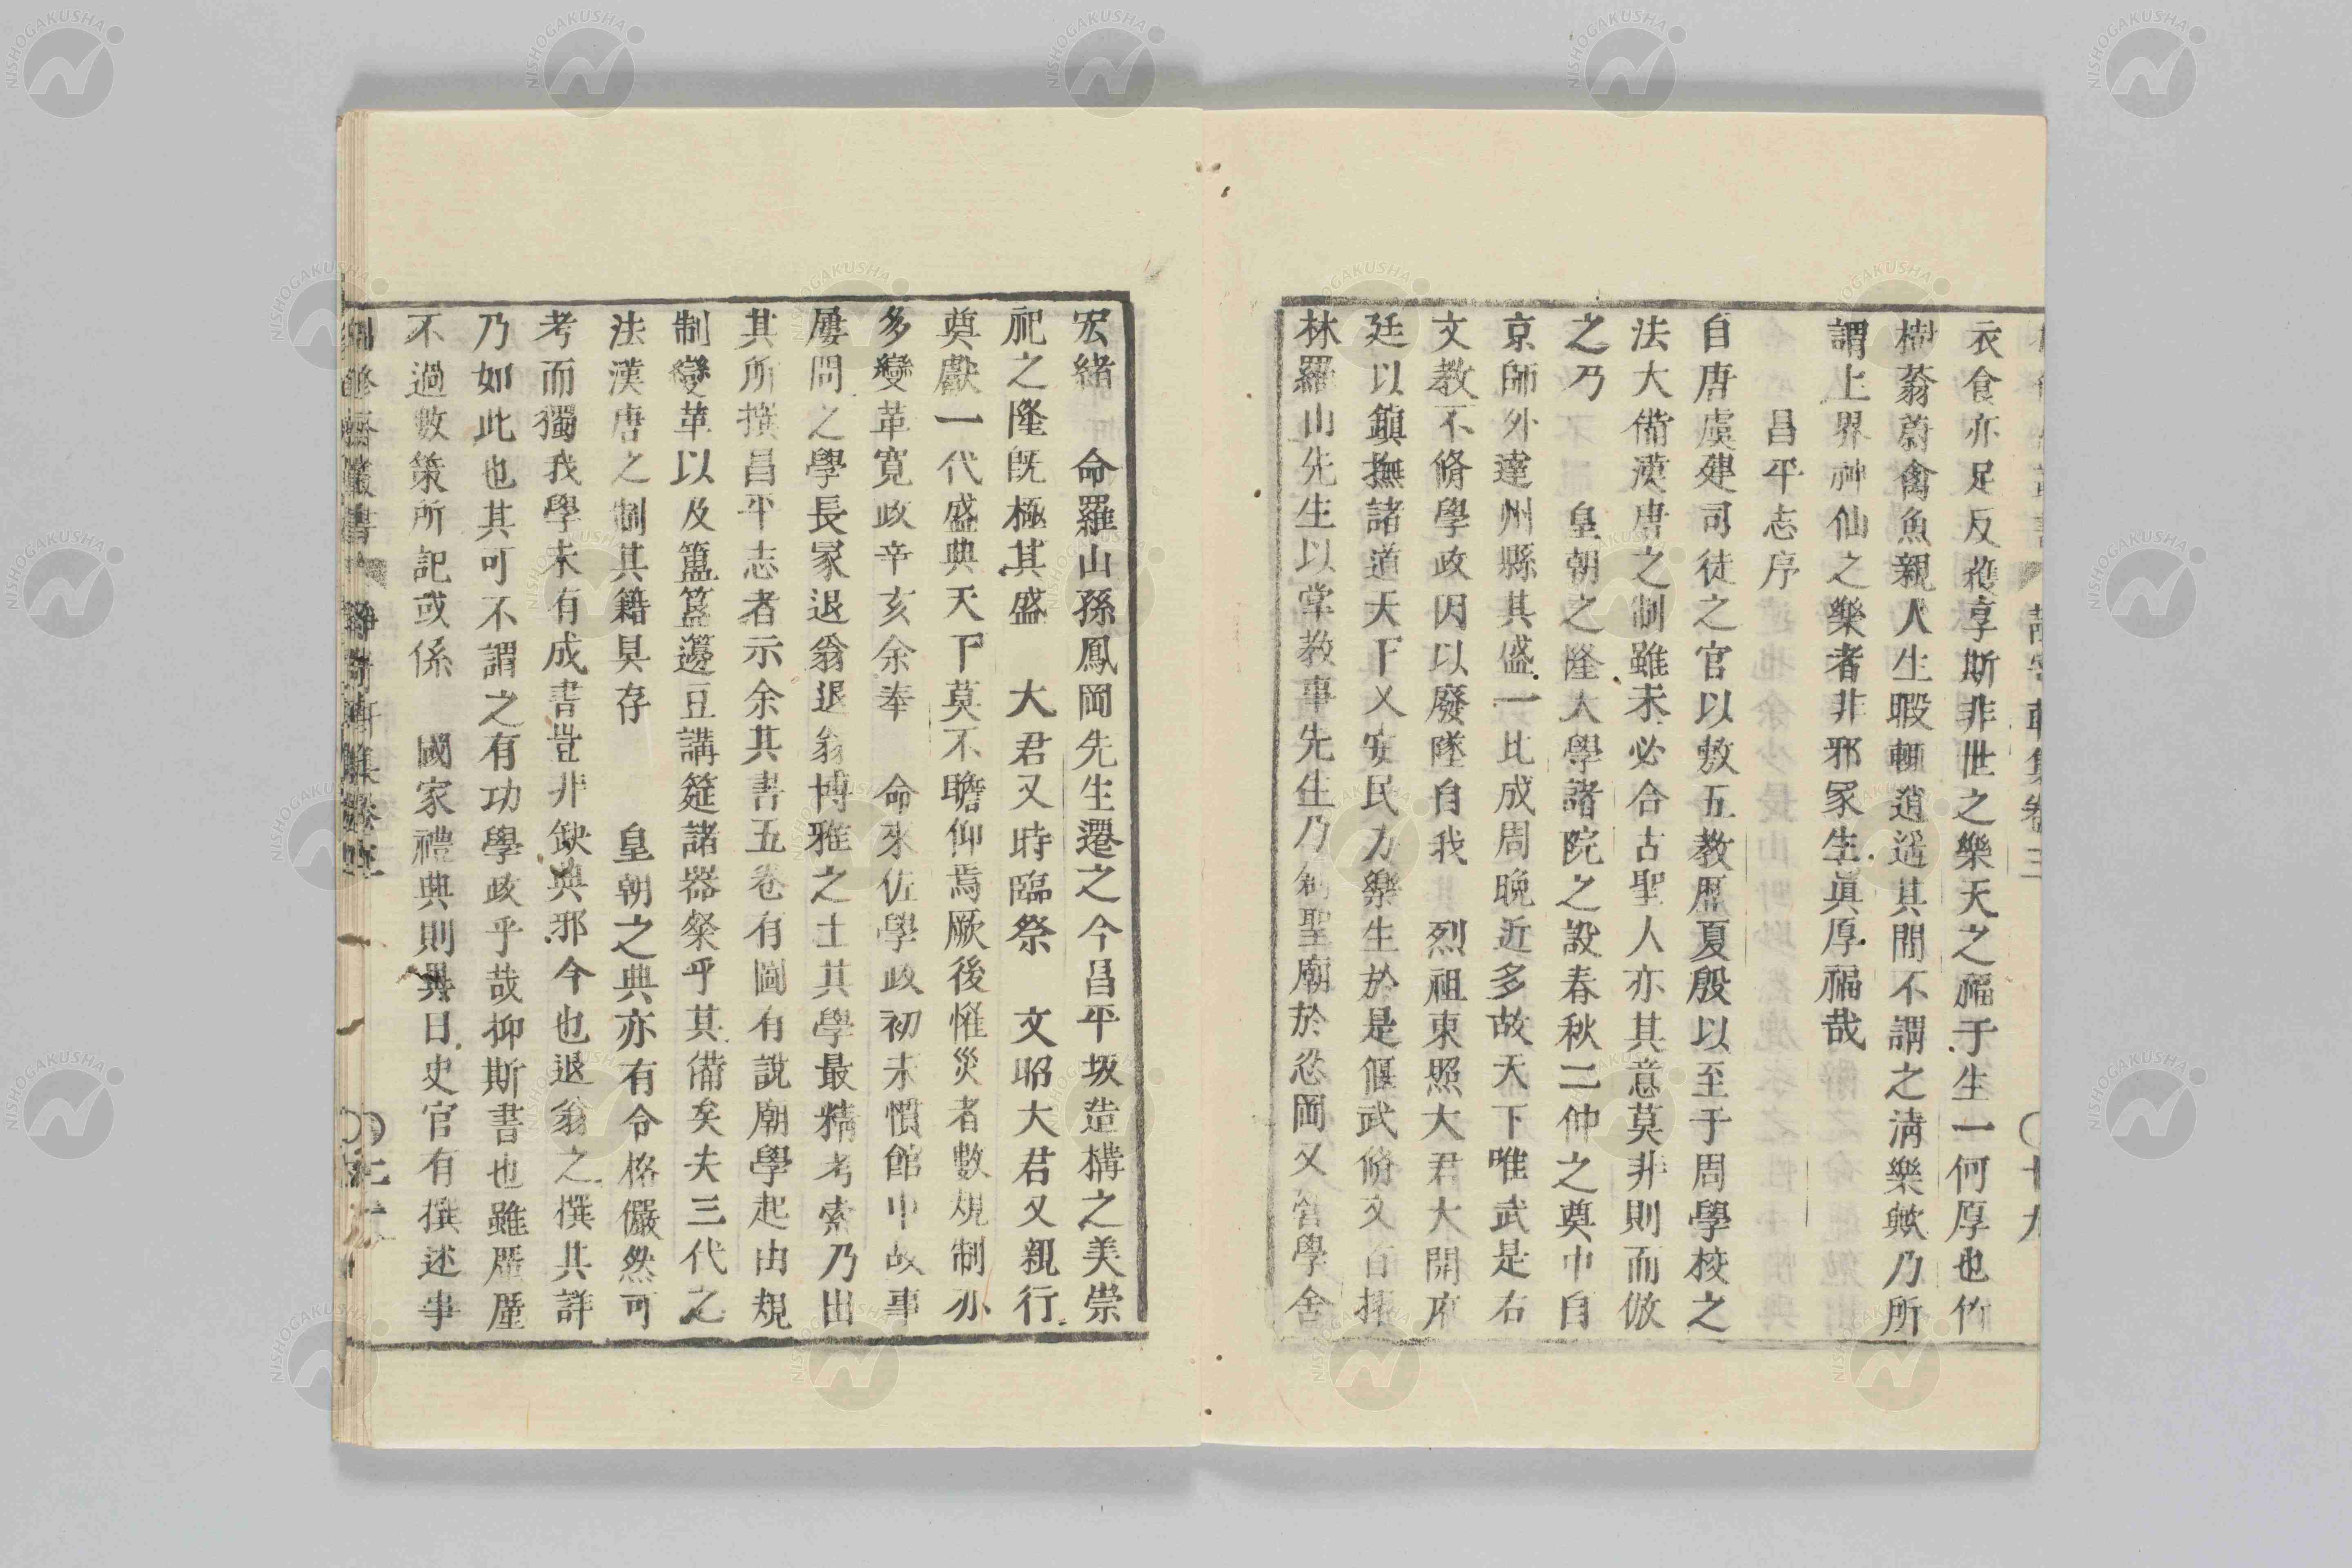 衣食亦足反穫享斯非世之樂天之福于生一何厚也竹
樹蓊蔚禽魚親人生暇輙逍遥其間不謂之淸樂歟乃所
謂上界神仙之樂者非邪冢生眞厚福哉
昌平志序
自唐虞建司徒之官以敷五教歷夏殷以至于周學校之
法大備漢唐之制雖未必合古聖人亦其意莫非則而倣
之乃 皇朝之隆大學諸院之設春秋二仲之奠中自
京師外達州縣其盛一比成周晩近多故天下唯武是右
文教不脩學政因以廢墜自我 烈祖東照大君大開府
廷以鎮撫諸道天下乂安民力樂生於是偃武脩文百揆
林羅山先生以掌教事先生乃創聖廟於忍岡又營學舍
宏緒 命羅山孫鳳岡先生遷之今昌平坂造構之美崇
祀之隆旣極其盛 大君又時臨祭 文昭大君又親行
奠獻一代盛典天下莫不瞻仰焉厥後惟災者數規制亦
多變革寛政辛亥余奉 命來佐學政初未慣館中故事
屢問之學長冢退翁退翁博雅之士其學最精考索乃出
其所撰昌平志者示余其書五卷有圖有說廟學起由規
制變革以及簠簋籩豆講筵諸器粲乎其備矣夫三代之
法漢唐之制其籍具存 皇朝之典亦有令格儼然可
考而獨我學未有成書豈非缺典邪今也退翁之撰其詳
乃如此也其可不謂之有功學政乎哉抑斯書也雖歷歷
不過數策所記或係 國家禮典則異日史官有撰述事